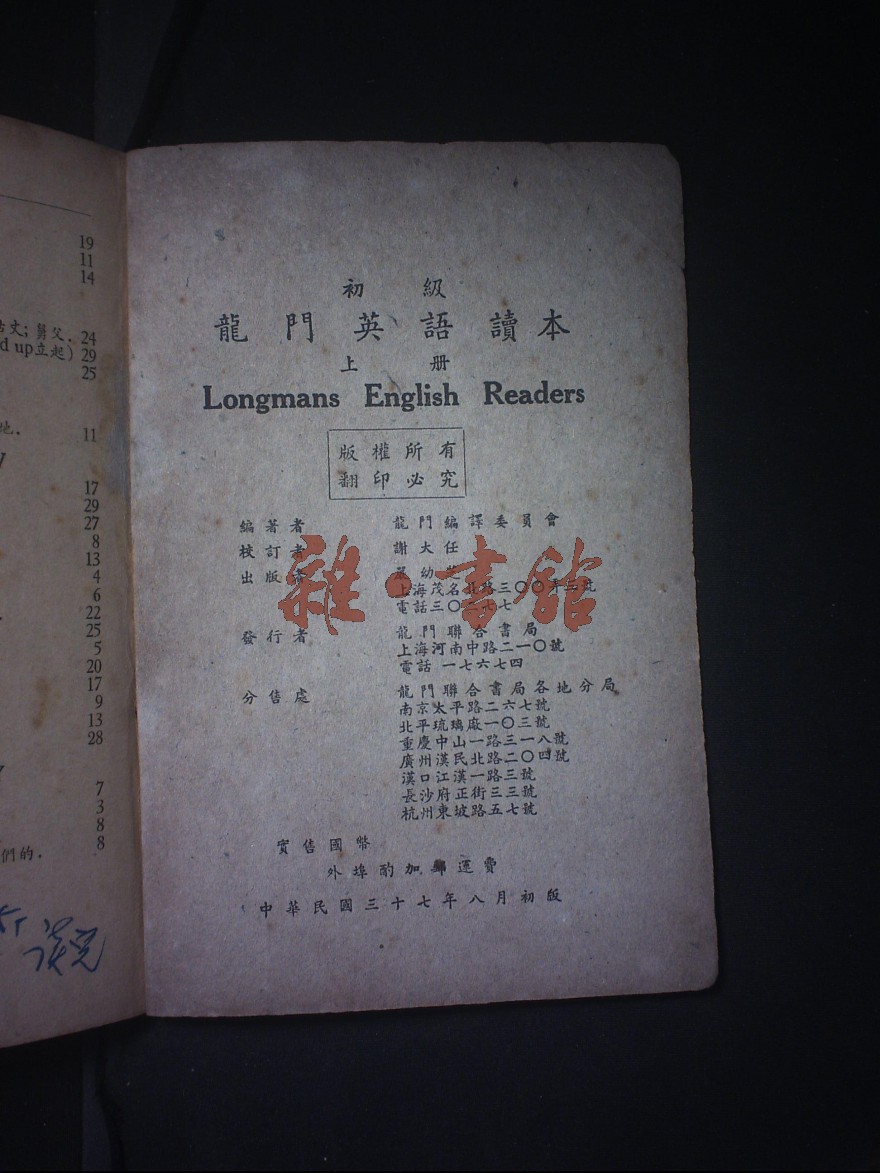 19
11
14
丈；舅父． 24
d up立起） 29
25
地． 11
17
29
27
8
13
4
6
22
25
5
20
17
9
13
28
7
3
8
們的． 8
初級
龍門英語讀本
上冊
Longmans English Readers
版權所有
翻印必究
編著者 龍門編譯委員會
校訂者 謝大任
出版者 嚴幼芝
上海茂名北路三〇〇弄三號
電話三〇
發行者 龍門聯合書局
上海河南中路二一〇號
電話 一七六七四
分售處 龍門聯合書局各地分局
南京太平路二六七號
北平琉璃廠一〇三號
重慶中山一路三一八號
廣州漢民北路二〇四號
漢口江漢一路三號
長沙府正街三三號
杭州東坡路五七號
實售國幣
外埠酌加郵運費
中華民國三十七年八月初版
雜·書館